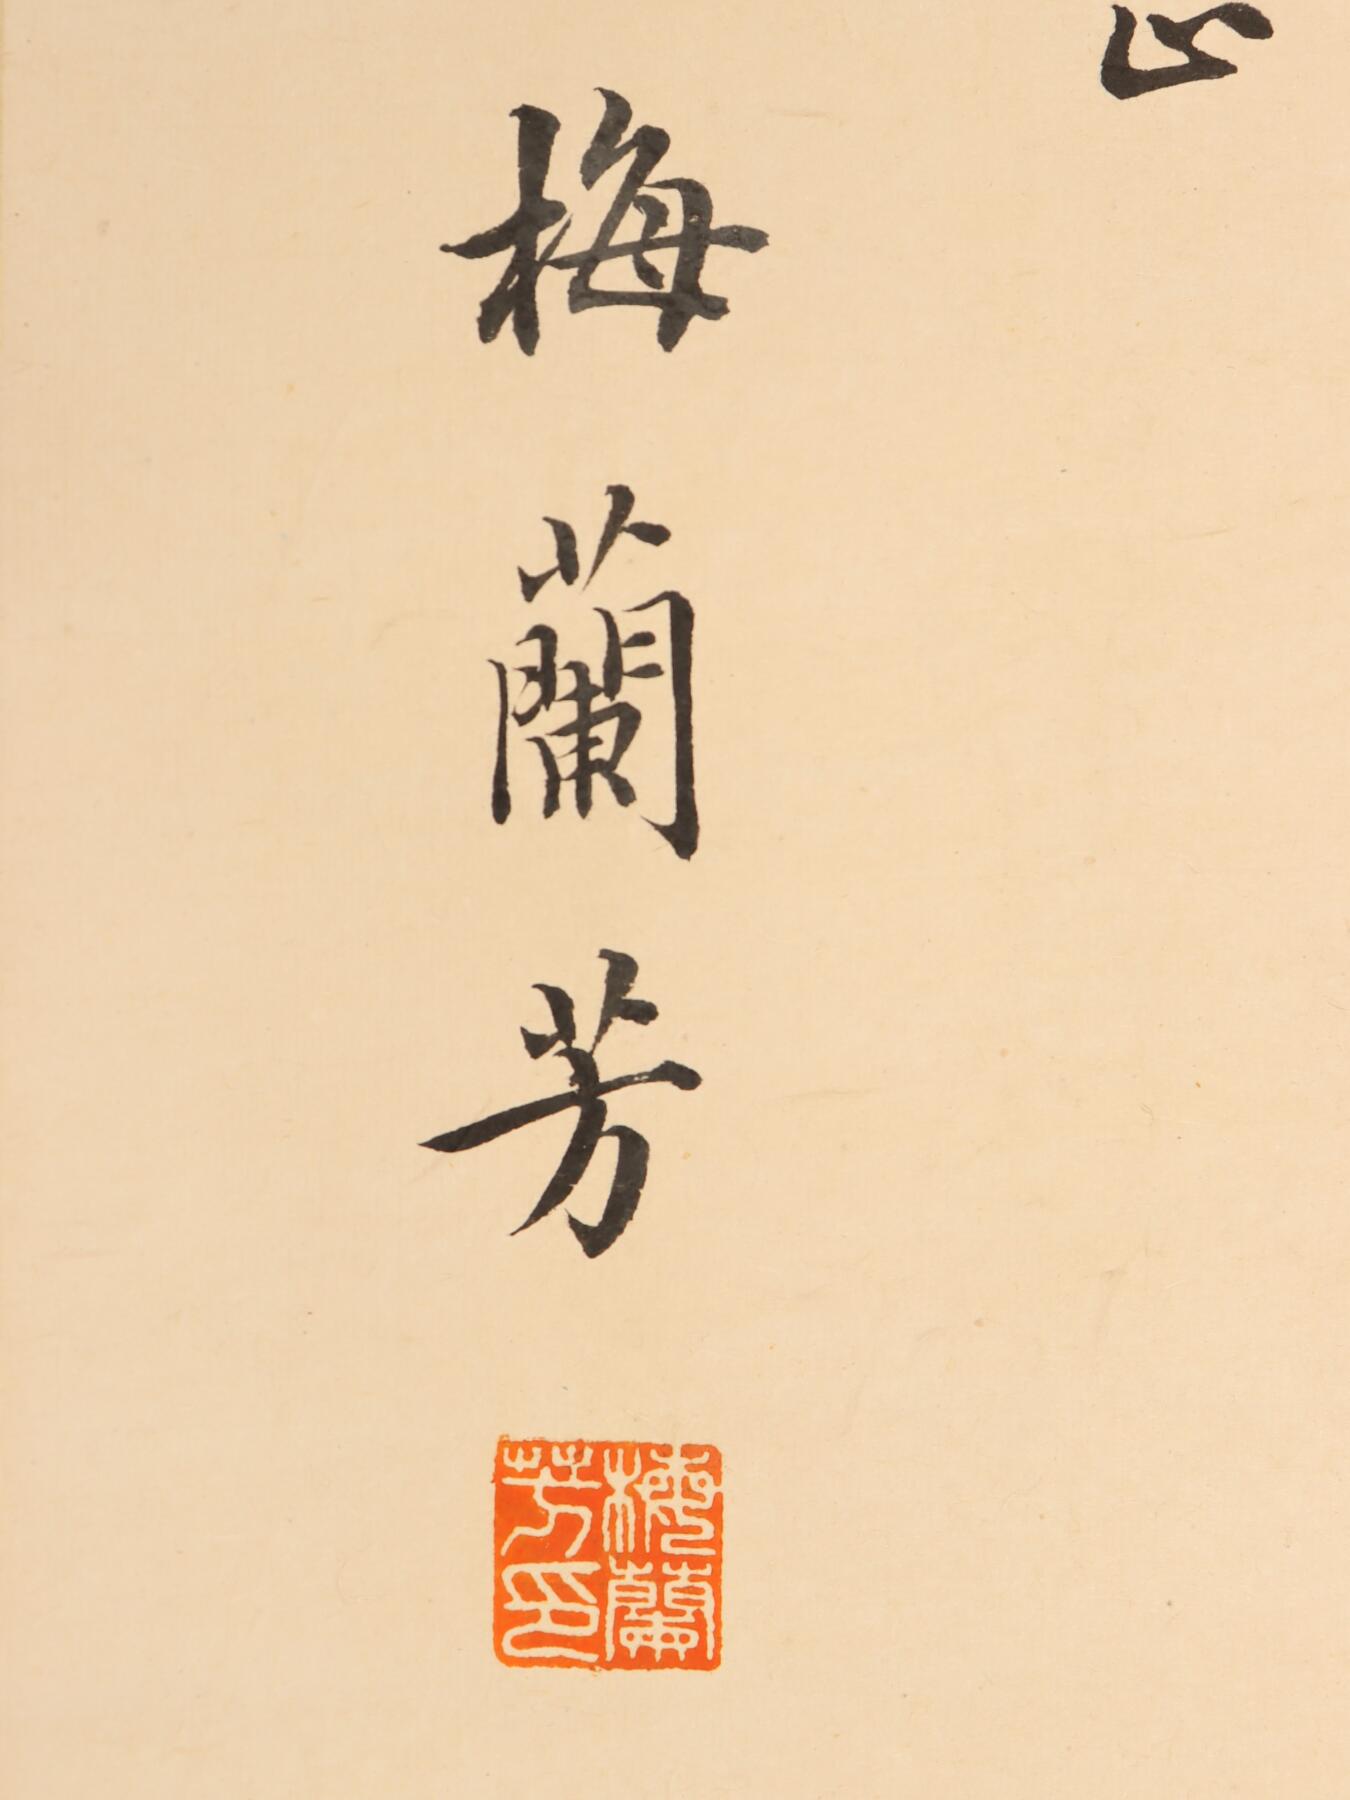 正
梅蘭芳
梅蘭芳印